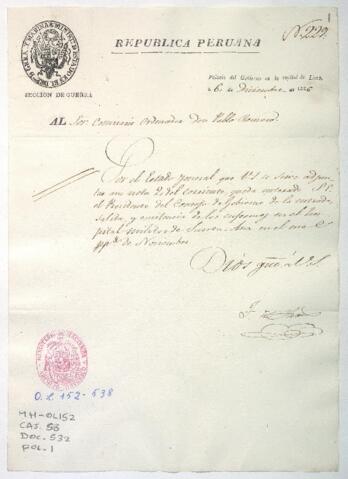 1
Nº 229.
REPUBLICA PERUANA
SECCION DE GUERRA
Palacio del Gobierno en la capital de Lima,
a 6 de Diciembre de 1826
AL Sor. Comisario Ordenador don Pablo Romero
Por el Estado jornal que V.S. se sirve adjun
tar en nota 2 del corriente, queda enterado S.E.
el Presidente del Consejo de Gobierno de la entrada,
salida, y existencia de los enfermos en el hos
pital militar de Santa Ana en el mes
ppdo. de Noviembre
Dios gue. á V.S.
O.L. 152-538
MH-OL152
CAJ. 58
DOC. 532
FOL. 1